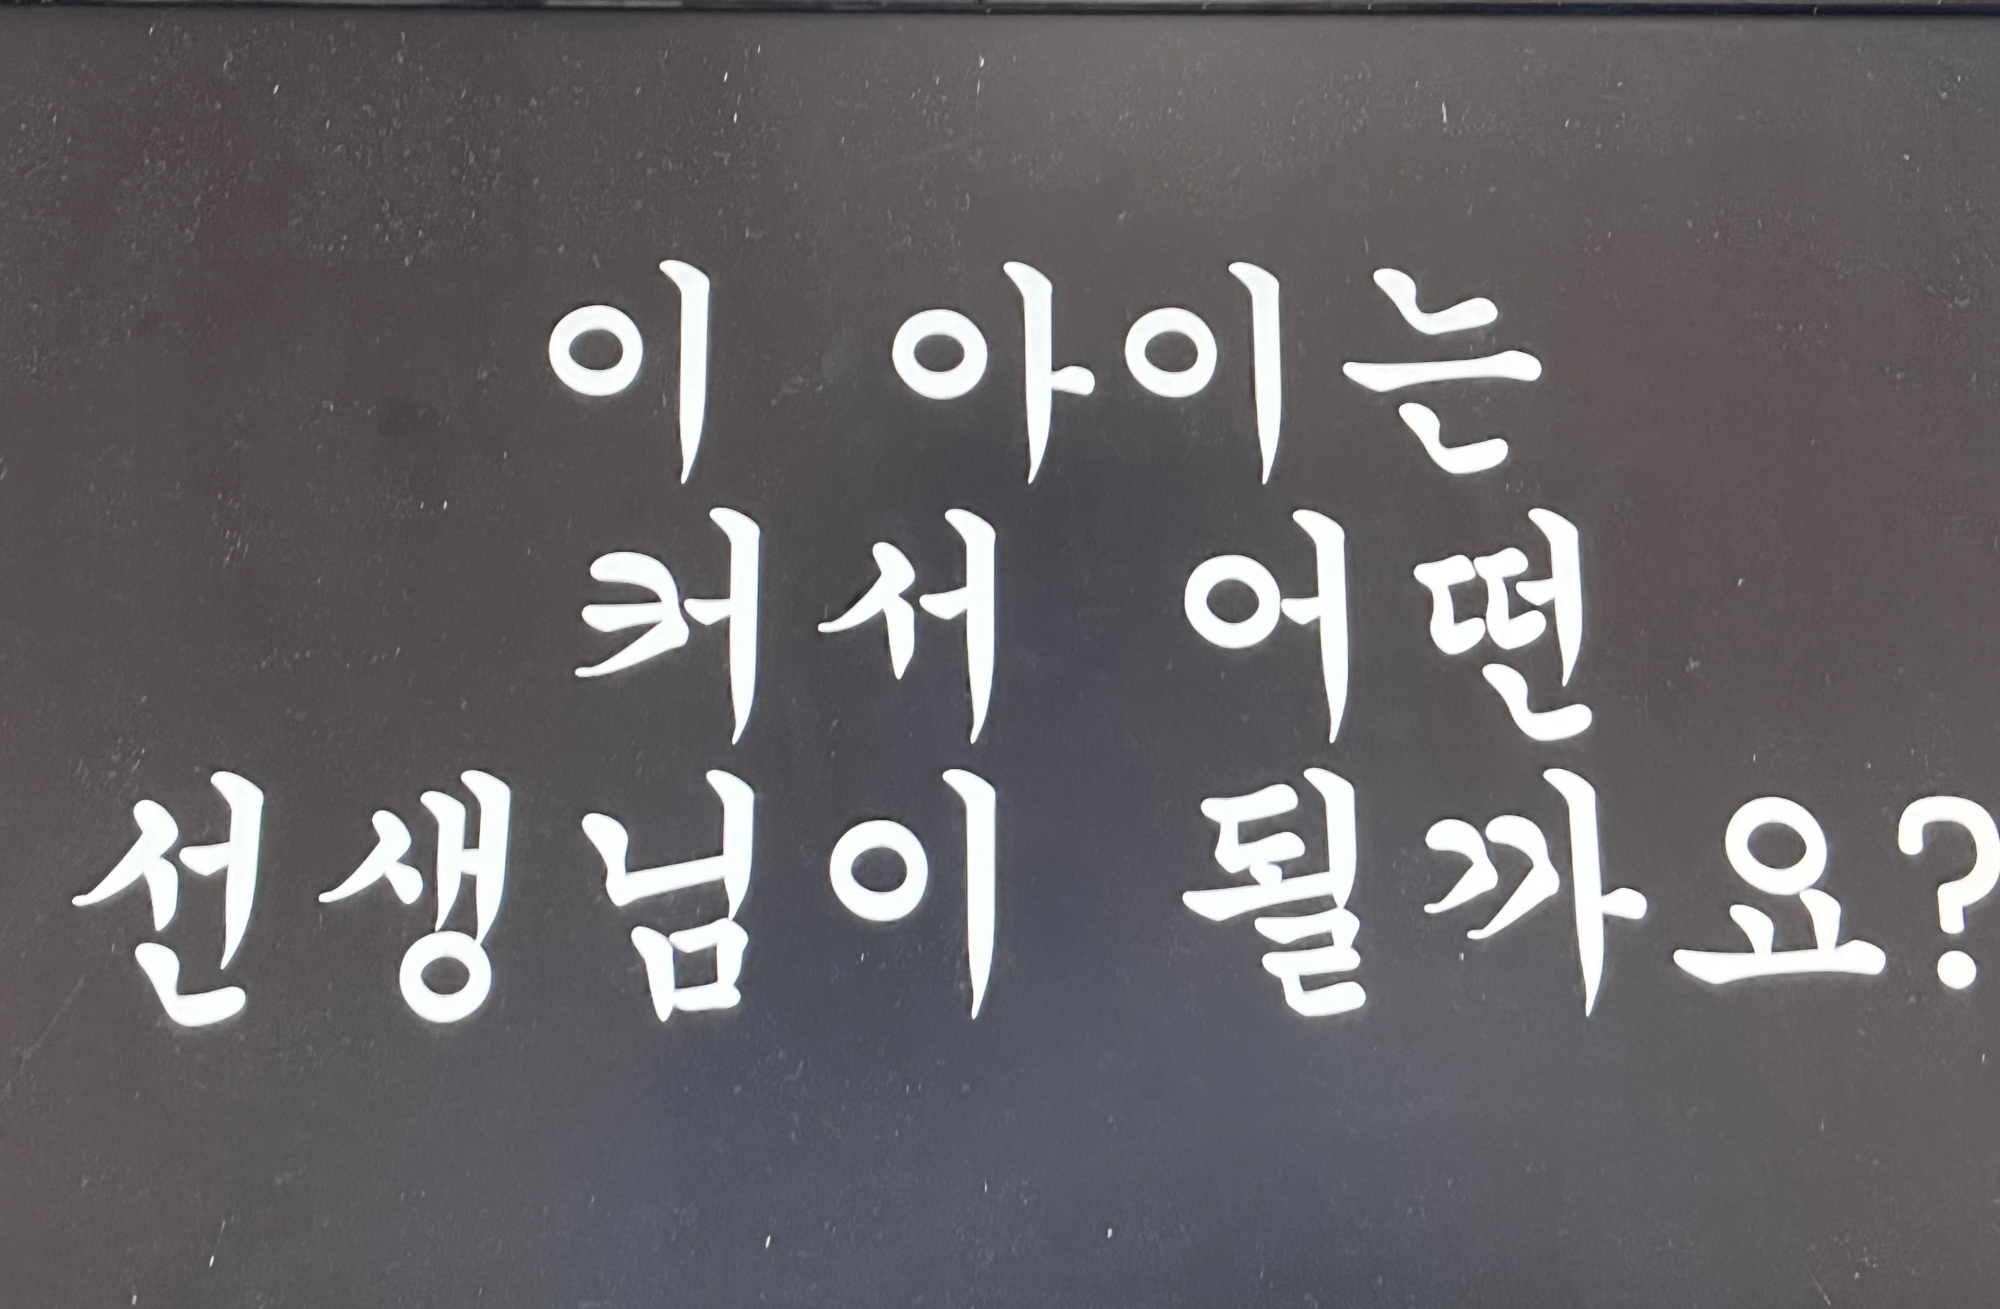 이 아이는
커서 어떤
선생님이 될까요?